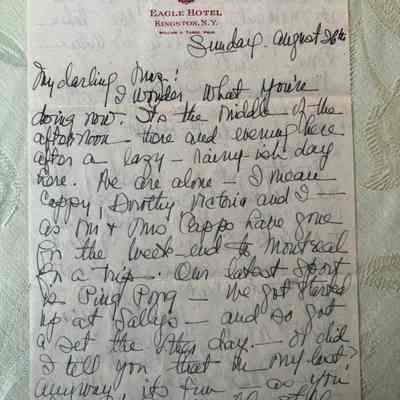 EAGLE HOTEL
KINGSTON, N.Y.
Sunday. August 26th
My darling
I wonder what you're
doing now. It's the middle of the
afternoon there and evening here
after a lazy - rainy-ish day
here. We are alone - I mean
Cappy, Dorothy Victoria and I -
as Mr & Mrs Capps have gone
for the week-end to Montreal
for a trip. Our latest sport
is Ping Pong - We got started
up at Sally's - and so got
a set the other day - or did
I tell you that in my last?
Anyway, it's fun - as you